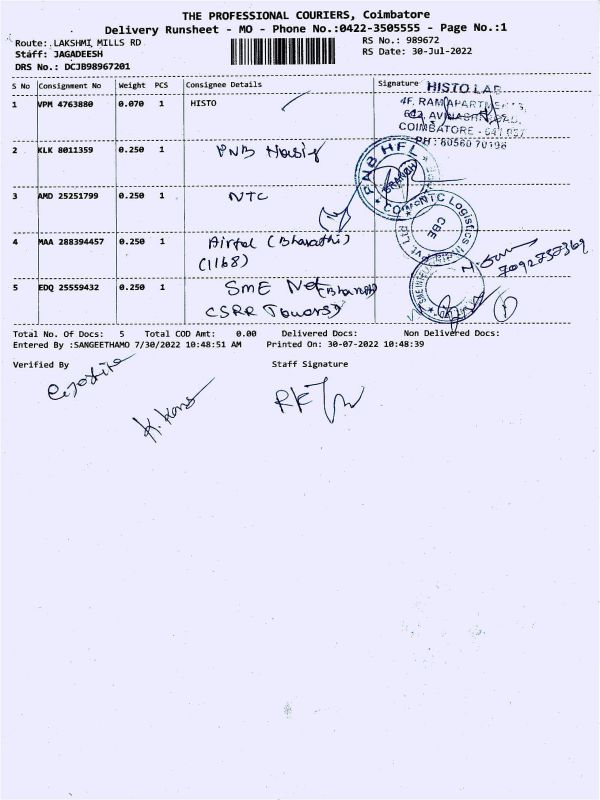 THE PROFESSIONAL COURIERS, Coimbatore
Delivery Runsheet - MO - Phone No.:0422-3505555 - Page No.:1
Route: LAKSHMI MILLS RD
RS No.: 989672
Staff: JAGADEESH
RS Date: 30-Jul-2022
DRS No.: DCJB98967201
S No Consignment No Weight PCS Consignee Details Signature
1 VPM 4763880 0.070 1 HISTO
HISTO LAB
4F, RAM APARTMENTS,
COIMBATORE
PH: 60560 70198
2 KLK 8011359 0.250 1 PNB Housing
PNB HFL
BRANCH
3 AMD 25251799 0.250 1 NTC
NTC Logistics
CBE
4 MAA 288394457 0.250 1 Airtel (Bharathi)
(1168)
7092750369
5 EDQ 25559432 0.250 1 SME Net (Bharath)
CSRR Towers)
Total No. Of Docs: 5 Total COD Amt: 0.00 Delivered Docs: Non Delivered Docs:
Entered By :SANGEETHAMO 7/30/2022 10:48:51 AM Printed On: 30-07-2022 10:48:39
Verified By Staff Signature